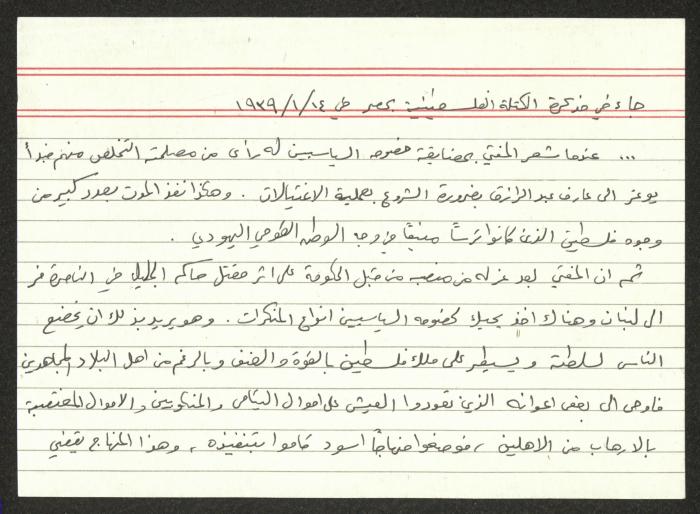 جاء في مذكرة الكتلة الفلسطينية بمصر في ١٤/١/١٩٣٩
... عندما شعر المفتي بمضايقة خصومه السياسيين له رأى من مصلحته التخلص منهم فبدأ
يوعز الى عارف عبد الرازق بضرورة الشروع بعملية الاغتيالات . وهكذا نفذ الموت بعدد كبير من
وجوه فلسطين الذين كانوا ترساً منيعاً في وجه الوطن القومي اليهودي .
ثم ان المفتي بعد عزله من منصبه من قبل الحكومة على اثر مقتل حاكم الجليل في الناصرة فر
الى لبنان وهناك اخذ يحيك لخصومه السياسيين انواع المنكرات . وهو يريد بذلك ان يخضع
الناس لسلطته ويسيطر على ملك فلسطين بالقوة والعنف وبالرغم من اهل البلاد المجاهدين
فاوحى الى بعض اعوانه الذين تعودوا العيش على اموال اليتامى والمنكوبين والاموال المغتصبة
بالارهاب من الاهلين ، فوضعوا منهاجاً اسود قاموا بتنفيذه ، وهذا المنهاج يقضي